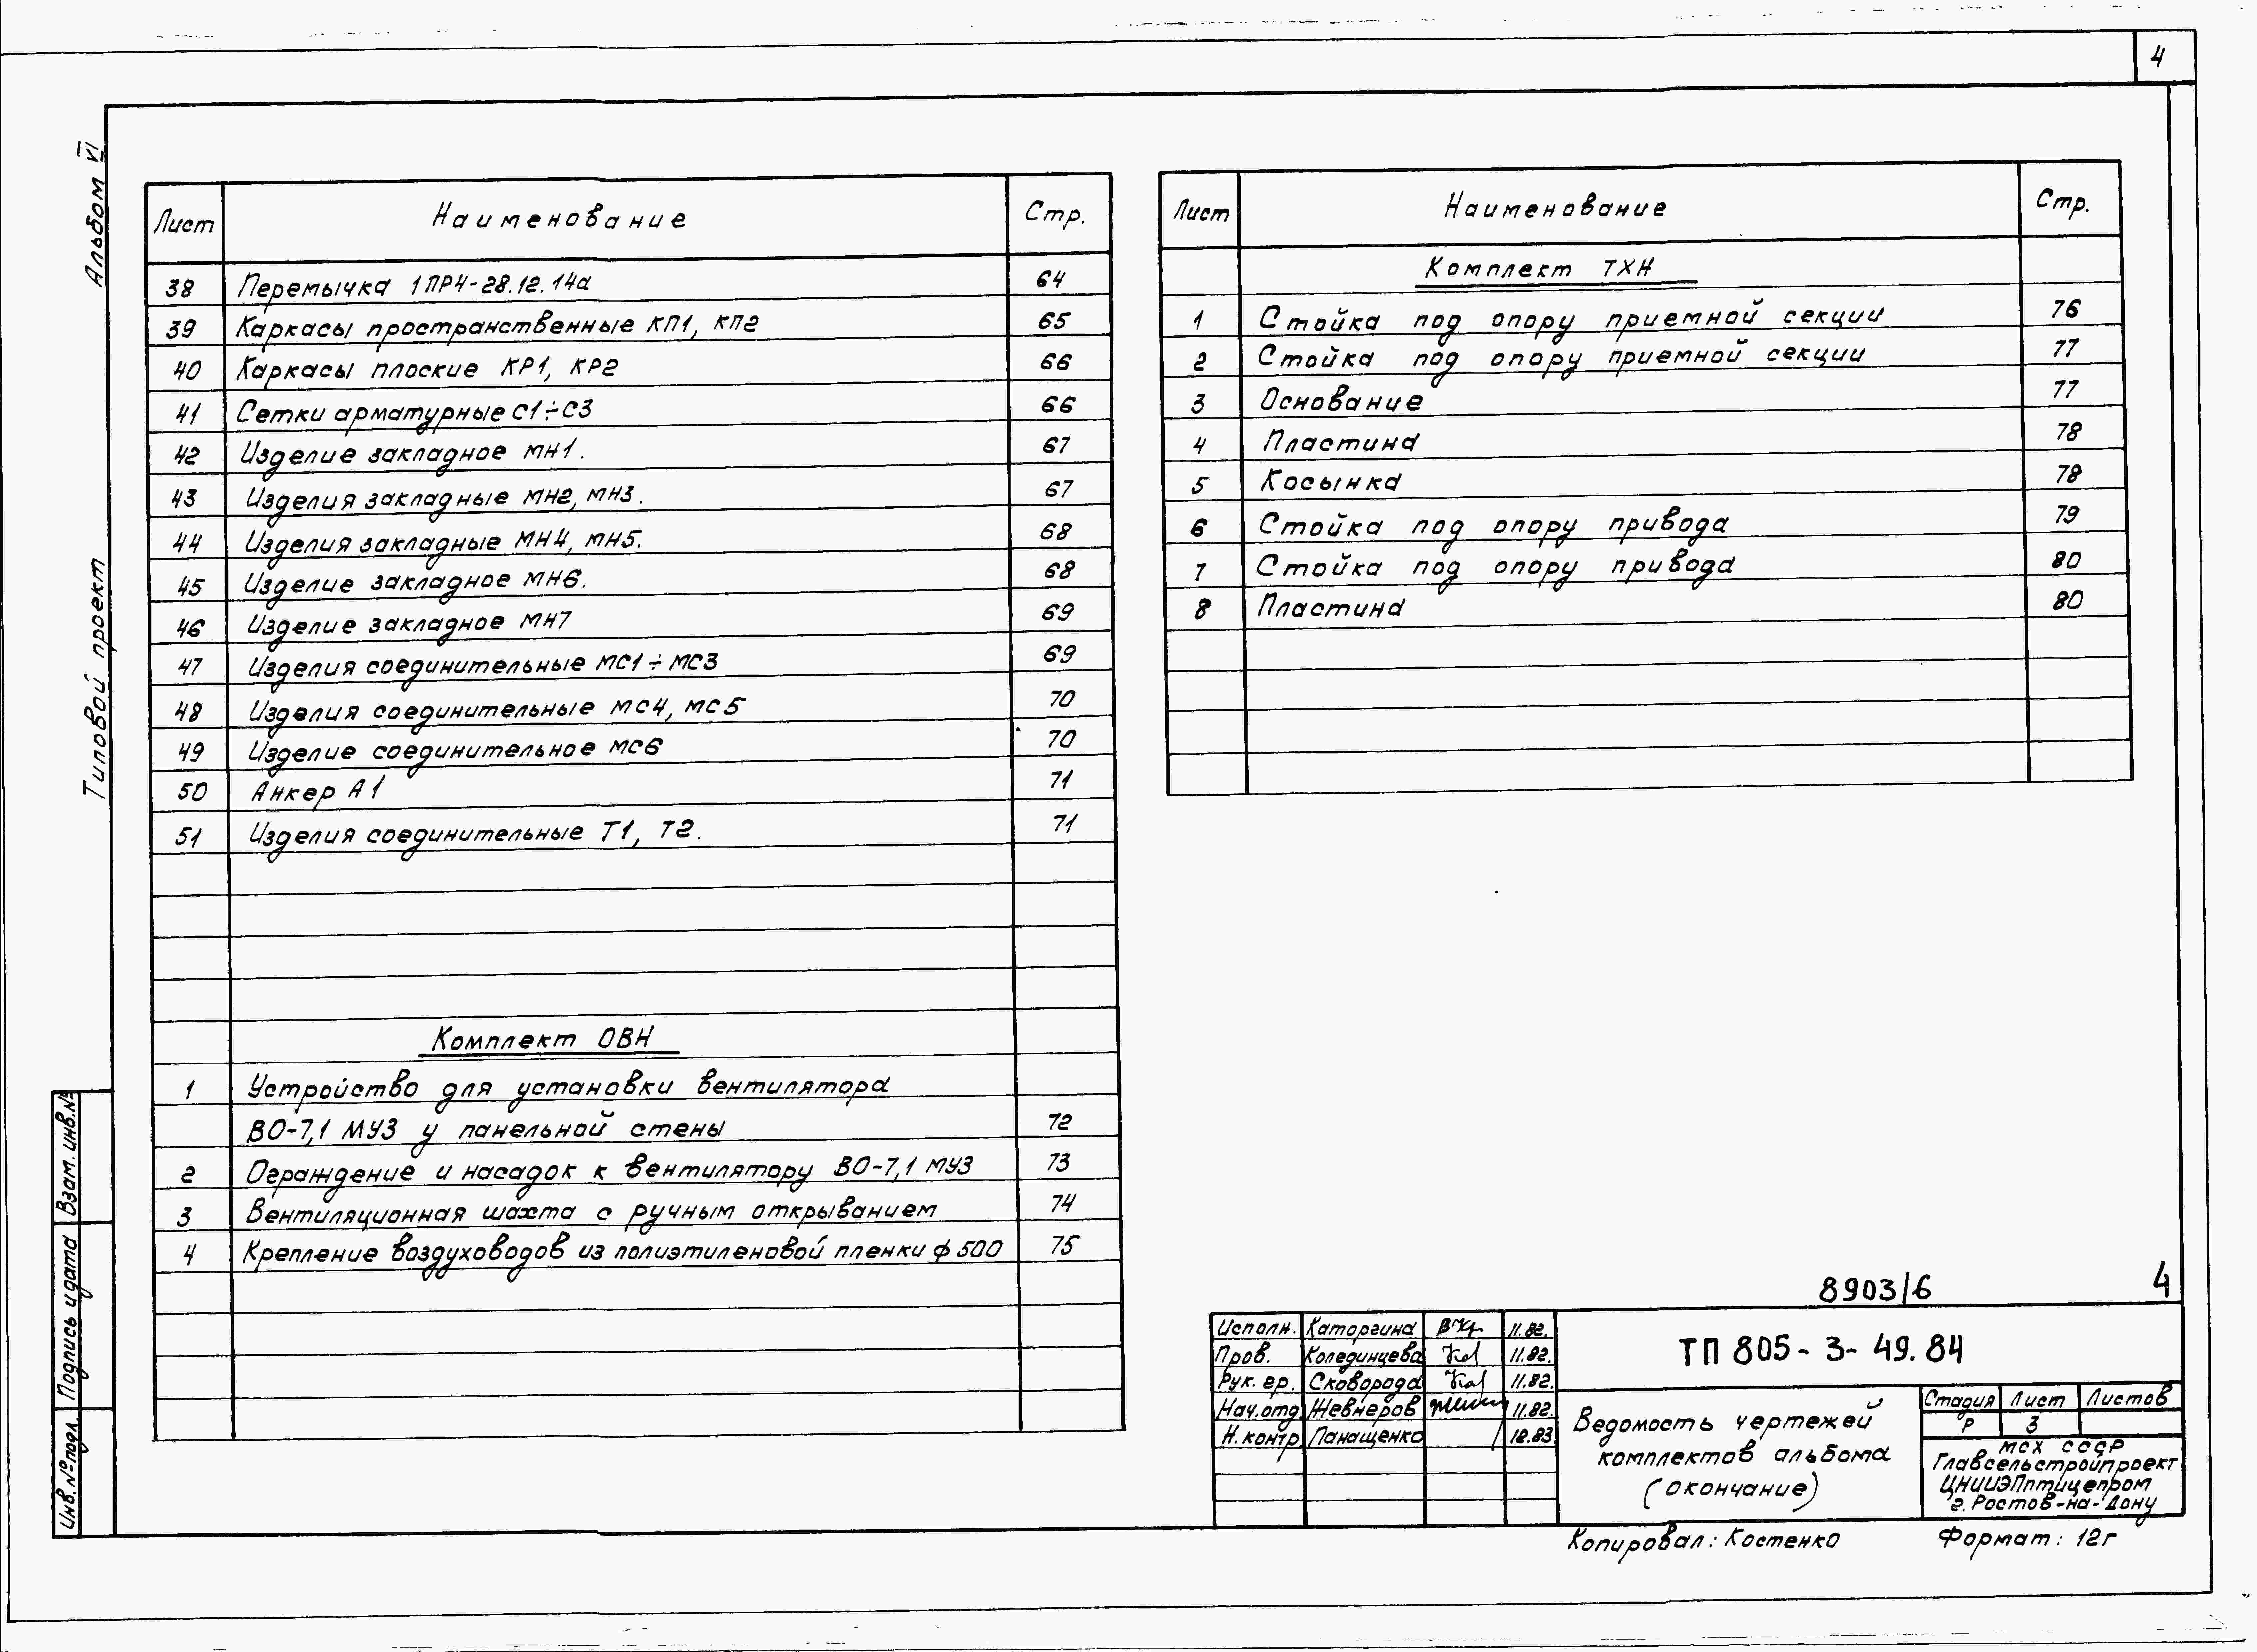 4
Альбом VI
Типовой проект
Лист Наименование Стр.
38 Перемычка 1ПР4-28.12.14а 64
39 Каркасы пространственные КП1, КП2 65
40 Каркасы плоские КР1, КР2 66
41 Сетки арматурные С1÷С3 66
42 Изделие закладное МН1. 67
43 Изделия закладные МН2, МН3. 67
44 Изделия закладные МН4, МН5. 68
45 Изделие закладное МН6. 68
46 Изделие закладное МН7 69
47 Изделия соединительные МС1÷МС3 69
48 Изделия соединительные МС4, МС5 70
49 Изделие соединительное МС6 70
50 Анкер А1 71
51 Изделия соединительные Т1, Т2. 71
Комплект ОВН
1 Устройство для установки вентилятора
ВО-7,1 МУЗ у панельной стены 72
2 Ограждение и насадок к вентилятору ВО-7,1 МУЗ 73
3 Вентиляционная шахта с ручным открыванием 74
4 Крепление воздуховодов из полиэтиленовой пленки ф 500 75
Лист Наименование Стр.
Комплект ТХН
1 Стойка под опору приемной секции 76
2 Стойка под опору приемной секции 77
3 Основание 77
4 Пластина 78
5 Косынка 78
6 Стойка под опору привода 79
7 Стойка под опору привода 80
8 Пластина 80
8903/6 4
Исполн. Каторгина 11.82.
Пров. Колединцева 11.82.
Рук. гр. Сковорода 11.82.
Нач.отд. Жевнеров 11.82.
Н.контр. Панащенко 12.83.
ТП 805-3-49.84
Ведомость чертежей
комплектов альбома
(окончание)
Стадия Лист Листов
Р 3
МСХ СССР
Главсельстройпроект
ЦНИИЭПптицепром
г. Ростов-на-Дону
Копировал: Костенко Формат: 12г
Взам. инв.№
Подпись и дата
Инв.№подл.